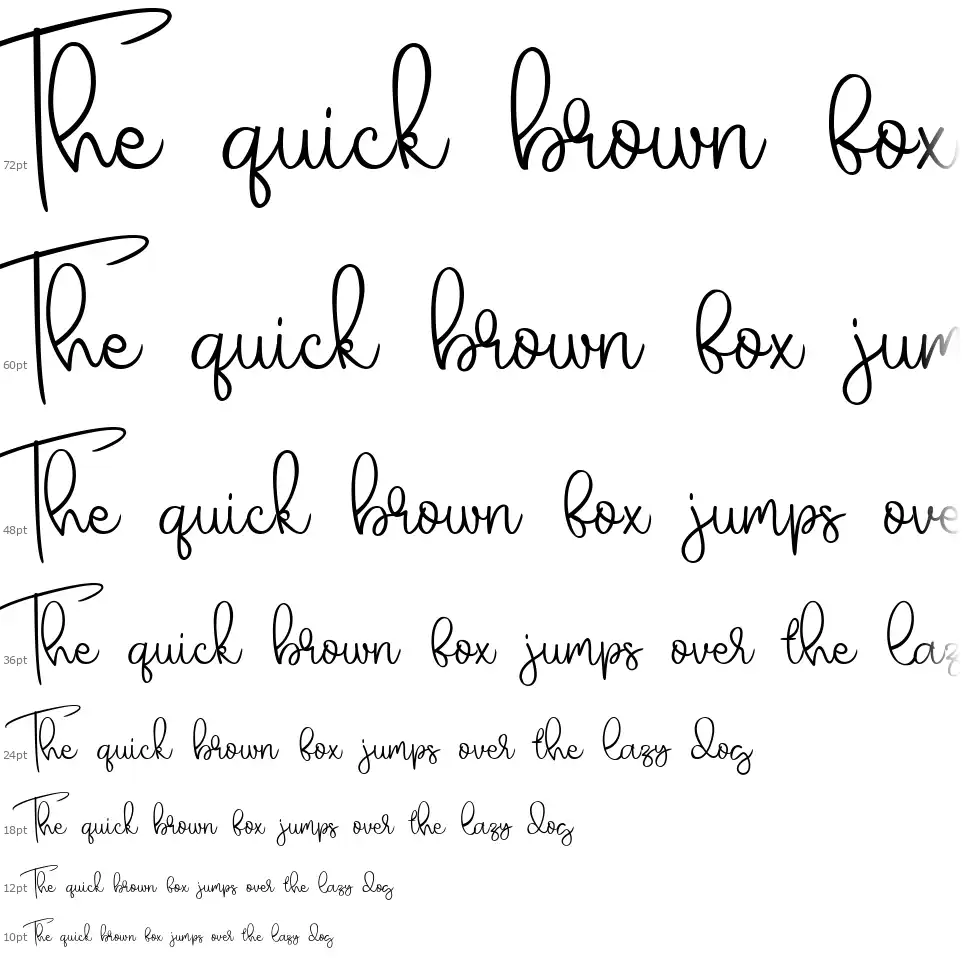 72pt The quick brown fox
60pt The quick brown fox jum
48pt The quick brown fox jumps ove
36pt The quick brown fox jumps over the laz
24pt The quick brown fox jumps over the lazy dog
18pt The quick brown fox jumps over the lazy dog
12pt The quick brown fox jumps over the lazy dog
10pt The quick brown fox jumps over the lazy dog